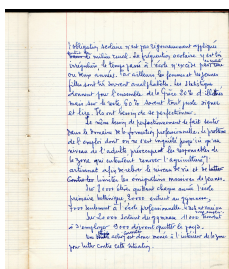 l'obligation scolaire n'est pas rigoureusement appliquée
en milieu rural. La fréquentation scolaire y est très
irrégulière, le temps passé à l'école n'excède pas
ou deux années. Par ailleurs les femmes et les jeunes
filles sont très souvent analphabètes. Les statistiques
donnent pour l'ensemble de la Grèce 20% d'illettrés
mais sur le reste 60% savent tout juste signer
et lire. Ils ont besoin de se perfectionner.
Le même besoin de perfectionnement se fait sentir
dans le domaine de la formation professionnelle. Le problème
de l'emploi dont on ne s'est inquiété jusqu'ici qu'au
niveau de l'adulte préoccupent les responsables de
la zone qui entendent rénover l'agriculture,
artisanat afin de relever le niveau de vie et de lutter
contre les émigrations massives de jeunes.
Sur 1000 élèves quittant chaque année l'école
primaire hellénique, 3000 entrent au gymnase,
7000 seulement à l'école professionnelle
Sur 20.000 sortant du gymnase 11000
à s'employer 9000 doivent quitter le pays.
Un effort est donc mené à l'intérieur de la zone
pour lutter contre cette situation.